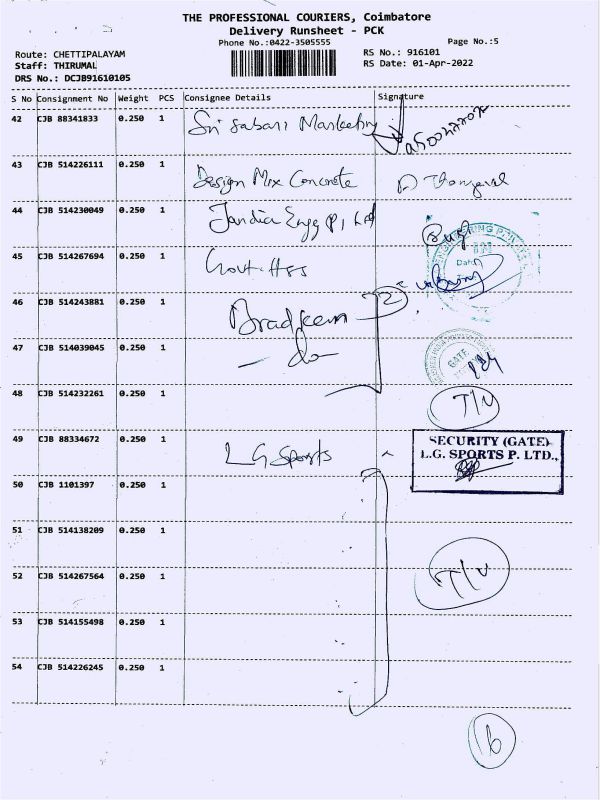 THE PROFESSIONAL COURIERS, Coimbatore
Delivery Runsheet - PCK
Phone No.:0422-3505555
Page No.:5
Route: CHETTIPALAYAM
Staff: THIRUMAL
DRS No.: DCJB91610105
RS No.: 916101
RS Date: 01-Apr-2022
S No Consignment No Weight PCS Consignee Details Signature
42 CJB 88341833 0.250 1 Sri Sabari Marketing
43 CJB 514226111 0.250 1 Design Mix Concrete
44 CJB 514230049 0.250 1 Engg (P) Ltd
45 CJB 514267694 0.250 1 Govt. Hss
46 CJB 514243881 0.250 1
47 CJB 514039045 0.250 1 - do -
48 CJB 514232261 0.250 1 T/U
49 CJB 88334672 0.250 1 LG Sports
SECURITY (GATE)
L.G. SPORTS P. LTD.,
50 CJB 1101397 0.250 1
51 CJB 514138209 0.250 1
52 CJB 514267564 0.250 1 T/U
53 CJB 514155498 0.250 1
54 CJB 514226245 0.250 1